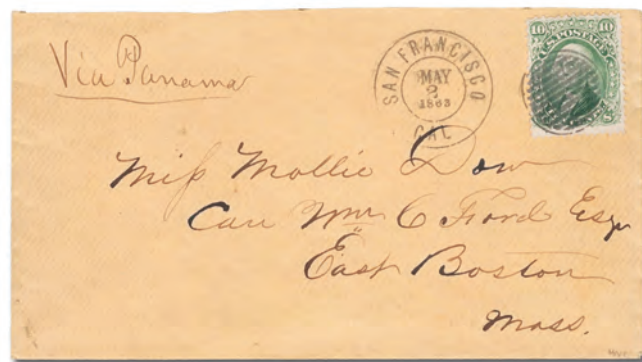 Via Panama
SAN FRANCISCO
MAY
2
1863
CAL
10 10
U.S. POSTAGE
Miss Mollie Dow
Care Wm C Ford Esqr
East Boston
Mass.